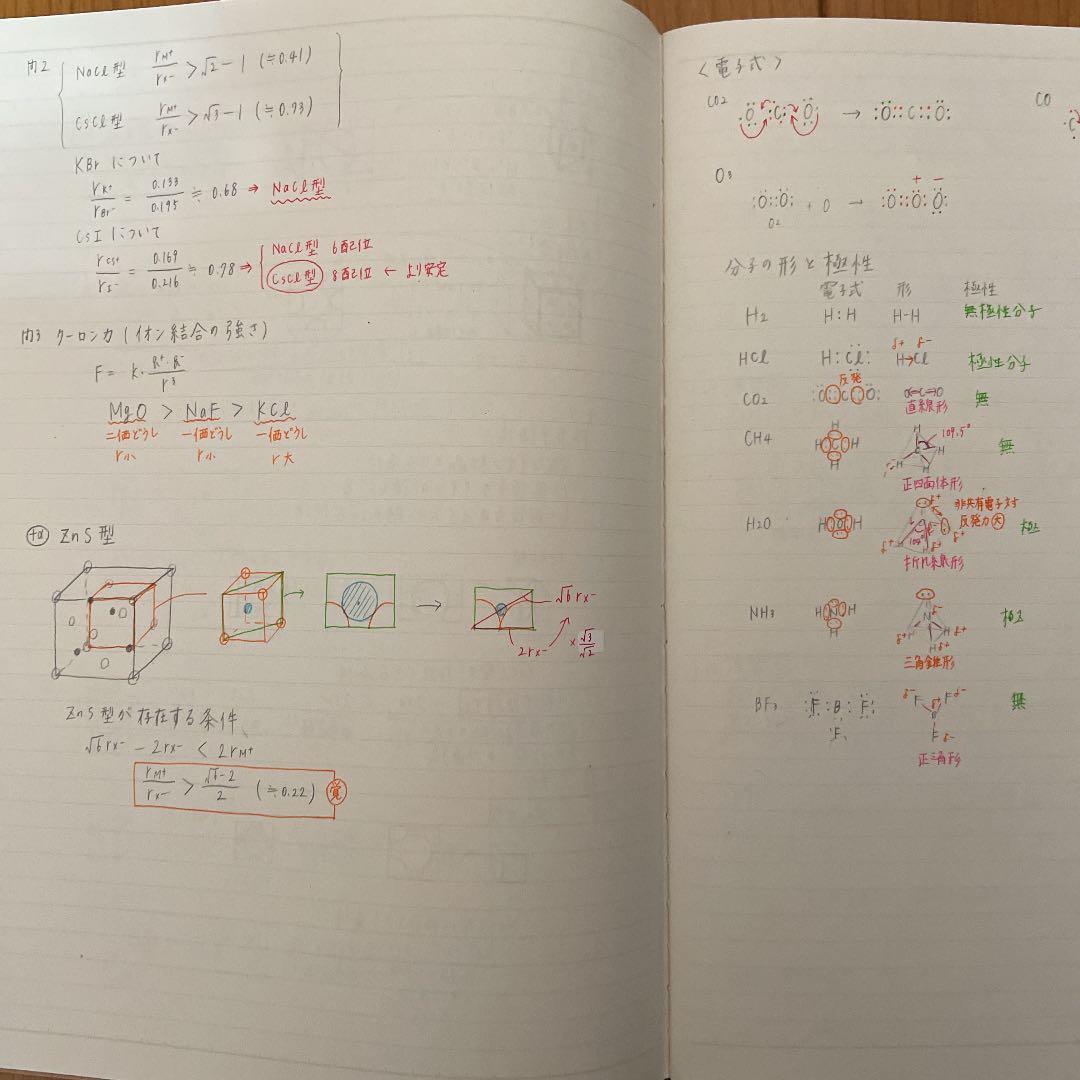 問2
NaCl型 rM+/rX- > √2-1 (≒0.41)
CsCl型 rM+/rX- > √3-1 (≒0.73)
KBrについて
rK+/rBr- = 0.133/0.195 ≒ 0.68 ⇒ NaCl型
CsIについて
rCs+/rI- = 0.169/0.216 ≒ 0.78 ⇒
NaCl型 6配位
CsCl型 8配位 ← より安定
問3 クーロン力(イオン結合の強さ)
MgO > NaF > KCl
二価どうし 一価どうし 一価どうし
r小 r小 r大
+α ZnS型
√6rX-
2rX- ×√3/√2
ZnS型が存在する条件、
√6rX- - 2rX- < 2rM+
rM+/rX- > √6-2/2 (≒0.22) 覚
<電子式>
CO2 :O: C :O: → :O::C::O:
CO
O3
:O::O: + O → :O:O:O:
O2
+ -
分子の形と極性
電子式 形 極性
H2 H:H H-H 無極性分子
HCl H:Cl: H→Cl 極性分子
δ+ δ-
反発
CO2 :O::C::O: O=C=O 無
直線形
CH4 H C H 109.5° 無
正四面体形
非共有電子対
反発力大
H2O H O H 104° 極
折れ線形
NH3 H N H 極
三角錐形
BF3 :F:B:F: 無
正三角形